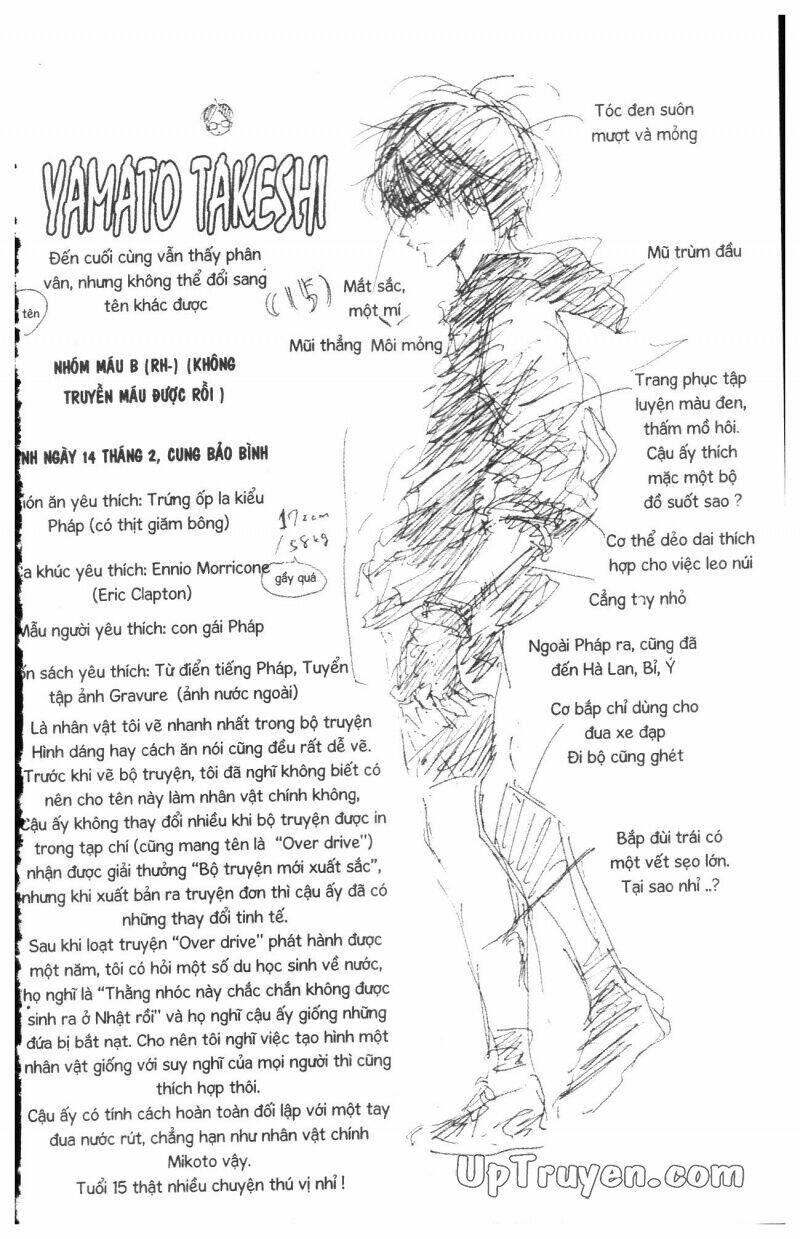 YAMATO TAKESHI
Đến cuối cùng vẫn thấy phân
vân, nhưng không thể đổi sang
tên khác được
tên
(15)
NHÓM MÁU B (RH-) (KHÔNG
TRUYỀN MÁU ĐƯỢC RỒI )
NH NGÀY 14 THÁNG 2, CUNG BẢO BÌNH
ón ăn yêu thích: Trứng ốp la kiểu
Pháp (có thịt giăm bông)
a khúc yêu thích: Ennio Morricone
(Eric Clapton)
gầy quá
Mẫu người yêu thích: con gái Pháp
ốn sách yêu thích: Từ điển tiếng Pháp, Tuyển
tập ảnh Gravure (ảnh nước ngoài)
Là nhân vật tôi vẽ nhanh nhất trong bộ truyện
Hình dáng hay cách ăn nói cũng đều rất dễ vẽ.
Trước khi vẽ bộ truyện, tôi đã nghĩ không biết có
nên cho tên này làm nhân vật chính không,
Cậu ấy không thay đổi nhiều khi bộ truyện được in
trong tạp chí (cũng mang tên là “Over drive”)
nhận được giải thưởng “Bộ truyện mới xuất sắc”,
nhưng khi xuất bản ra truyện đơn thì cậu ấy đã có
những thay đổi tinh tế.
Sau khi loạt truyện “Over drive” phát hành được
một năm, tôi có hỏi một số du học sinh về nước,
họ nghĩ là “Thằng nhóc này chắc chắn không được
sinh ra ở Nhật rồi” và họ nghĩ cậu ấy giống những
đứa bị bắt nạt. Cho nên tôi nghĩ việc tạo hình một
nhân vật giống với suy nghĩ của mọi người thì cũng
thích hợp thôi.
Cậu ấy có tính cách hoàn toàn đối lập với một tay
đua nước rút, chẳng hạn như nhân vật chính
Mikoto vậy.
Tuổi 15 thật nhiều chuyện thú vị nhỉ !
Tóc đen suôn
mượt và mỏng
Mắt sắc,
một mí
Mũi thẳng Môi mỏng
Mũ trùm đầu
Trang phục tập
luyện màu đen,
thấm mồ hôi.
Cậu ấy thích
mặc một bộ
đồ suốt sao ?
Cơ thể dẻo dai thích
hợp cho việc leo núi
Cẳng tay nhỏ
Ngoài Pháp ra, cũng đã
đến Hà Lan, Bỉ, Ý
Cơ bắp chỉ dùng cho
đua xe đạp
Đi bộ cũng ghét
Bắp đùi trái có
một vết sẹo lớn.
Tại sao nhỉ ..?
UpTruyen.com